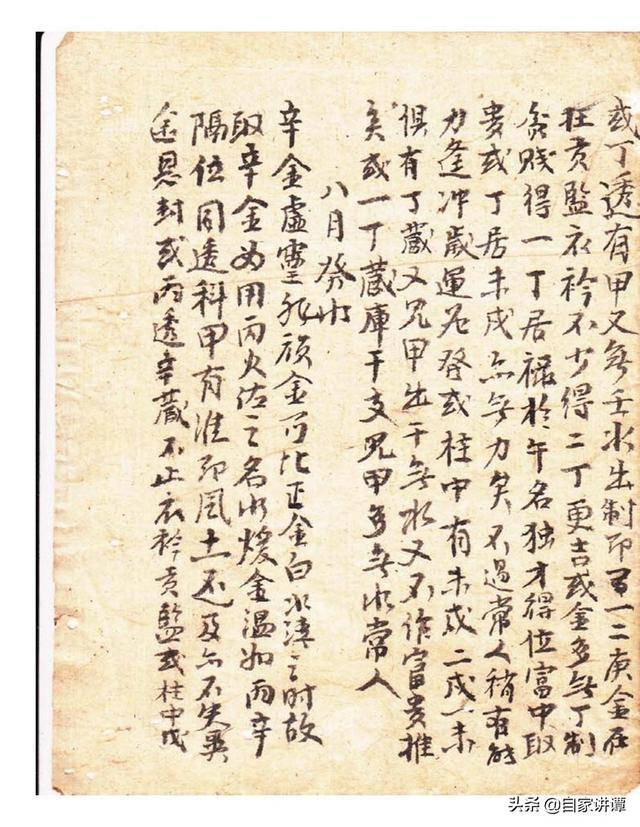 或丁透有甲又無壬水出制即有一二庚金在
旺贡監衣衿不少得二丁更吉或金多無丁制
貧贱得一丁居禄於午名独才得位富中取
贵或丁居未戌亦無力矣不過常人稍有能
力逢冲歲運必發或柱中有未戌二戌一未
俱有丁藏又見甲出干無水又不作富贵推
矣或一丁藏庫干支見甲多無水常人
八月癸水
辛金虛靈非頑金可比正金白水清之时故
取辛金为用丙火佐之名水煖金温如丙辛
隔位同透科甲有准即風土不及亦不失異
途恩封或丙透辛藏不止衣衿贡監或柱中戊
头条 @自家讲谭